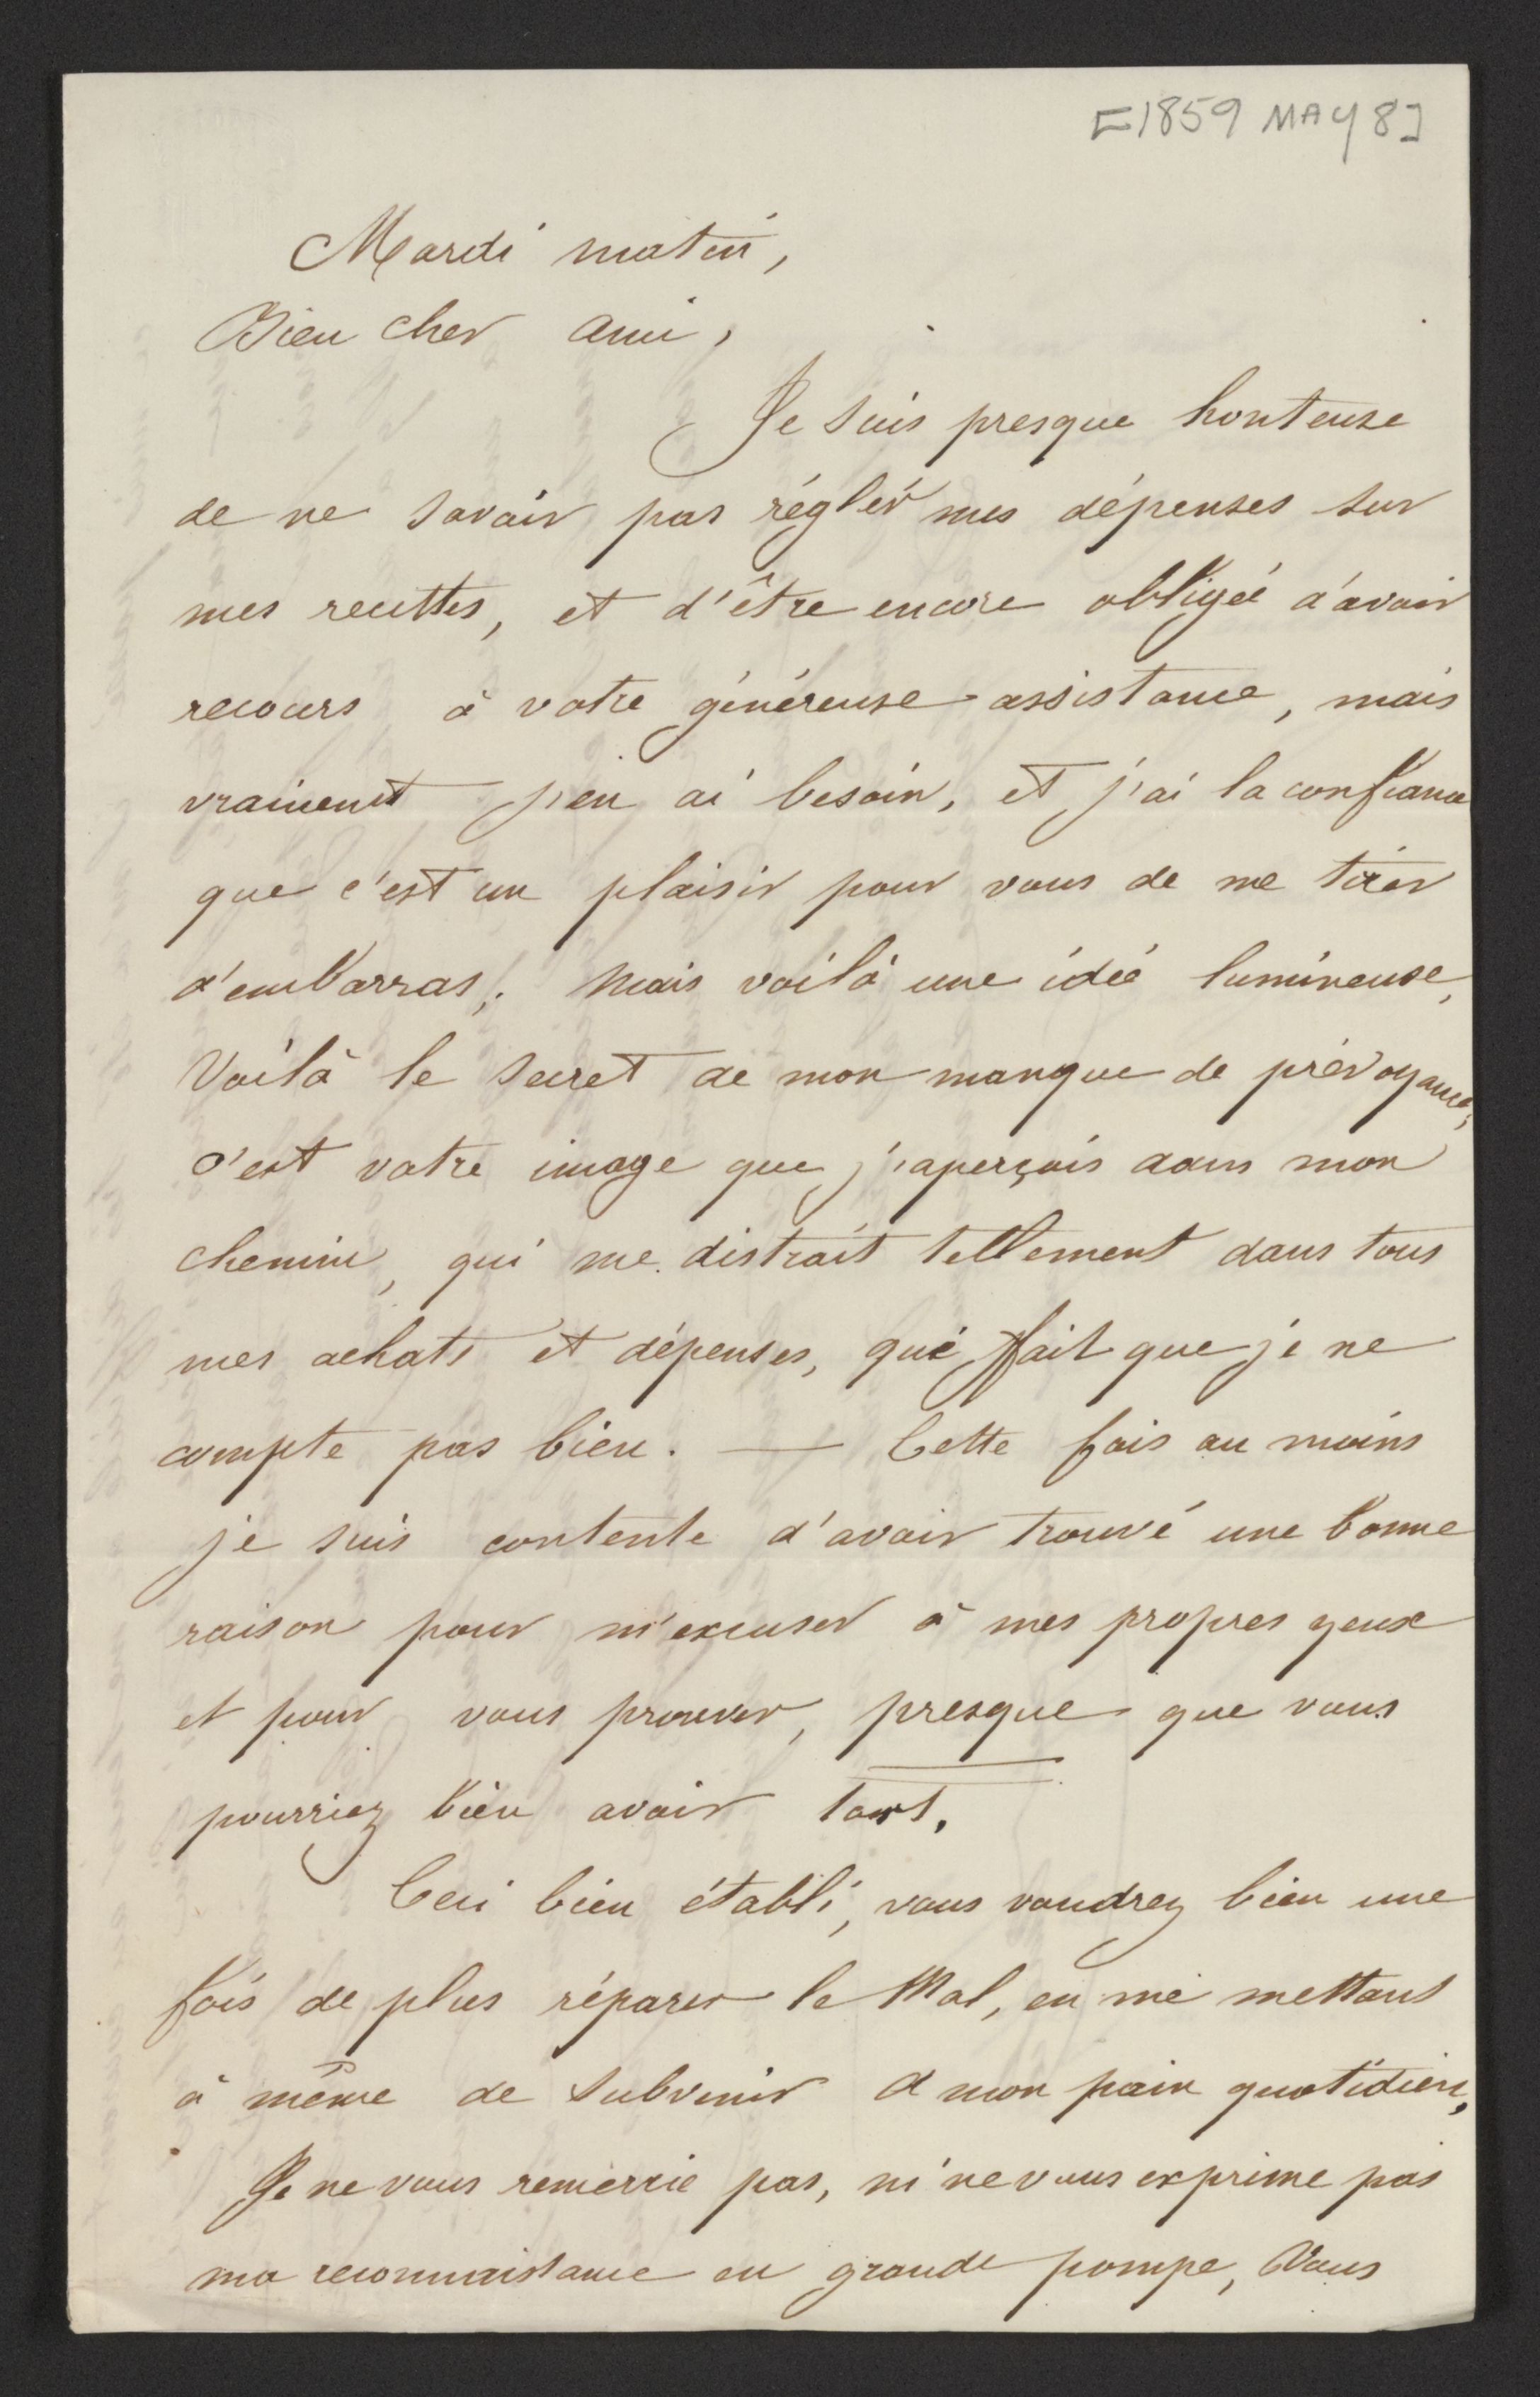 [1859 MAY 8]
Mardi matin,
Bien cher ami,
Je suis presque honteuse
de ne savoir pas régler mes dépenses sur
mes recettes, et d'être encore obligée d'avoir
recours à votre généreuse assistance, mais
vraiment j'en ai besoin, et j'ai la confiance
que c'est un plaisir pour vous de me tirer
d'embarras; mais voilà une idée lumineuse,
Voilà le secret de mon manque de prévoyance,
c'est votre image que j'aperçois dans mon
chemin, qui me distrait tellement dans tous
mes achats et dépenses, qui fait que je ne
compte pas bien. — Cette fois au moins
je suis contente d'avoir trouvé une bonne
raison pour m'excuser à mes propres yeux
et pour vous prouver, presque que vous
pourriez bien avoir tort.
Ceci bien établi, vous voudrez bien une
fois de plus réparer le Mal, en me mettant
à même de subvenir à mon pain quotidien,
Je ne vous remercie pas, ni ne vous exprime pas
ma reconnaissance en grande pompe, Vous